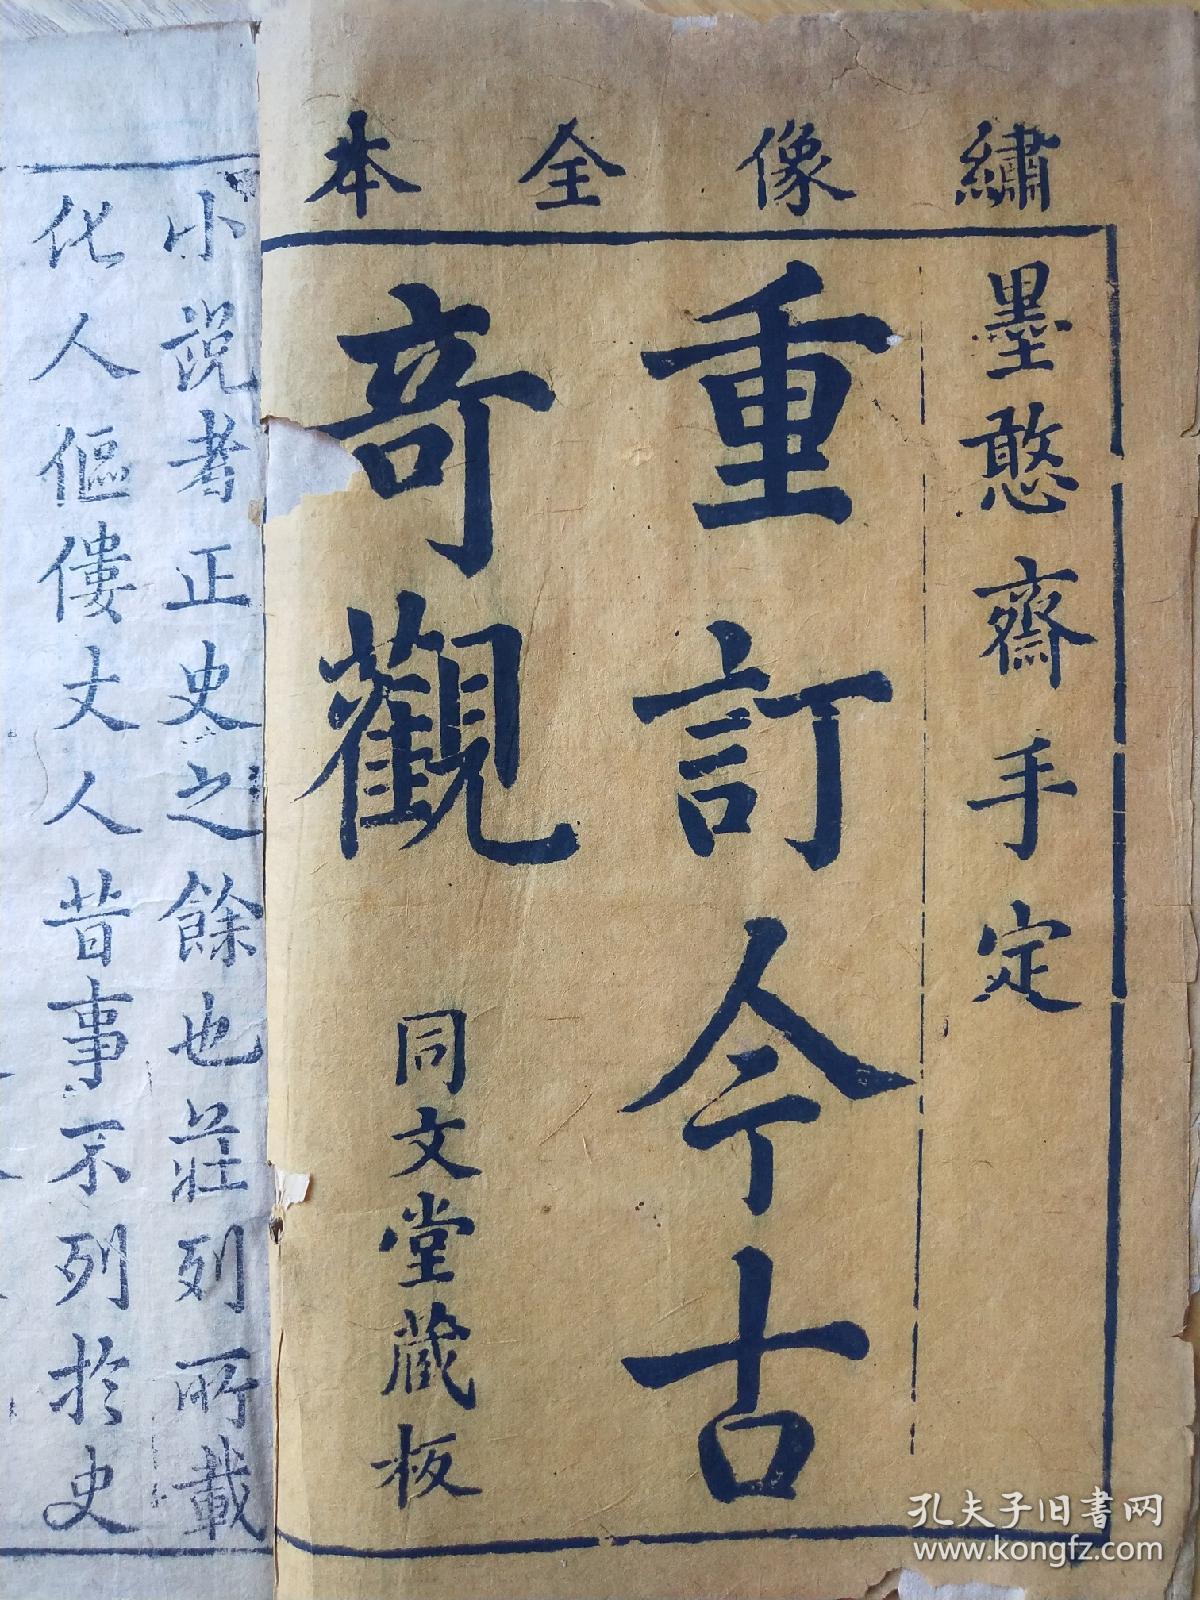 繡像全本
墨憨齋手定
重訂今古
奇觀
同文堂藏板
小說者正史之餘也莊列所載
化人傴僂丈人昔事不列於史
孔夫子旧书网
www.kongfz.com